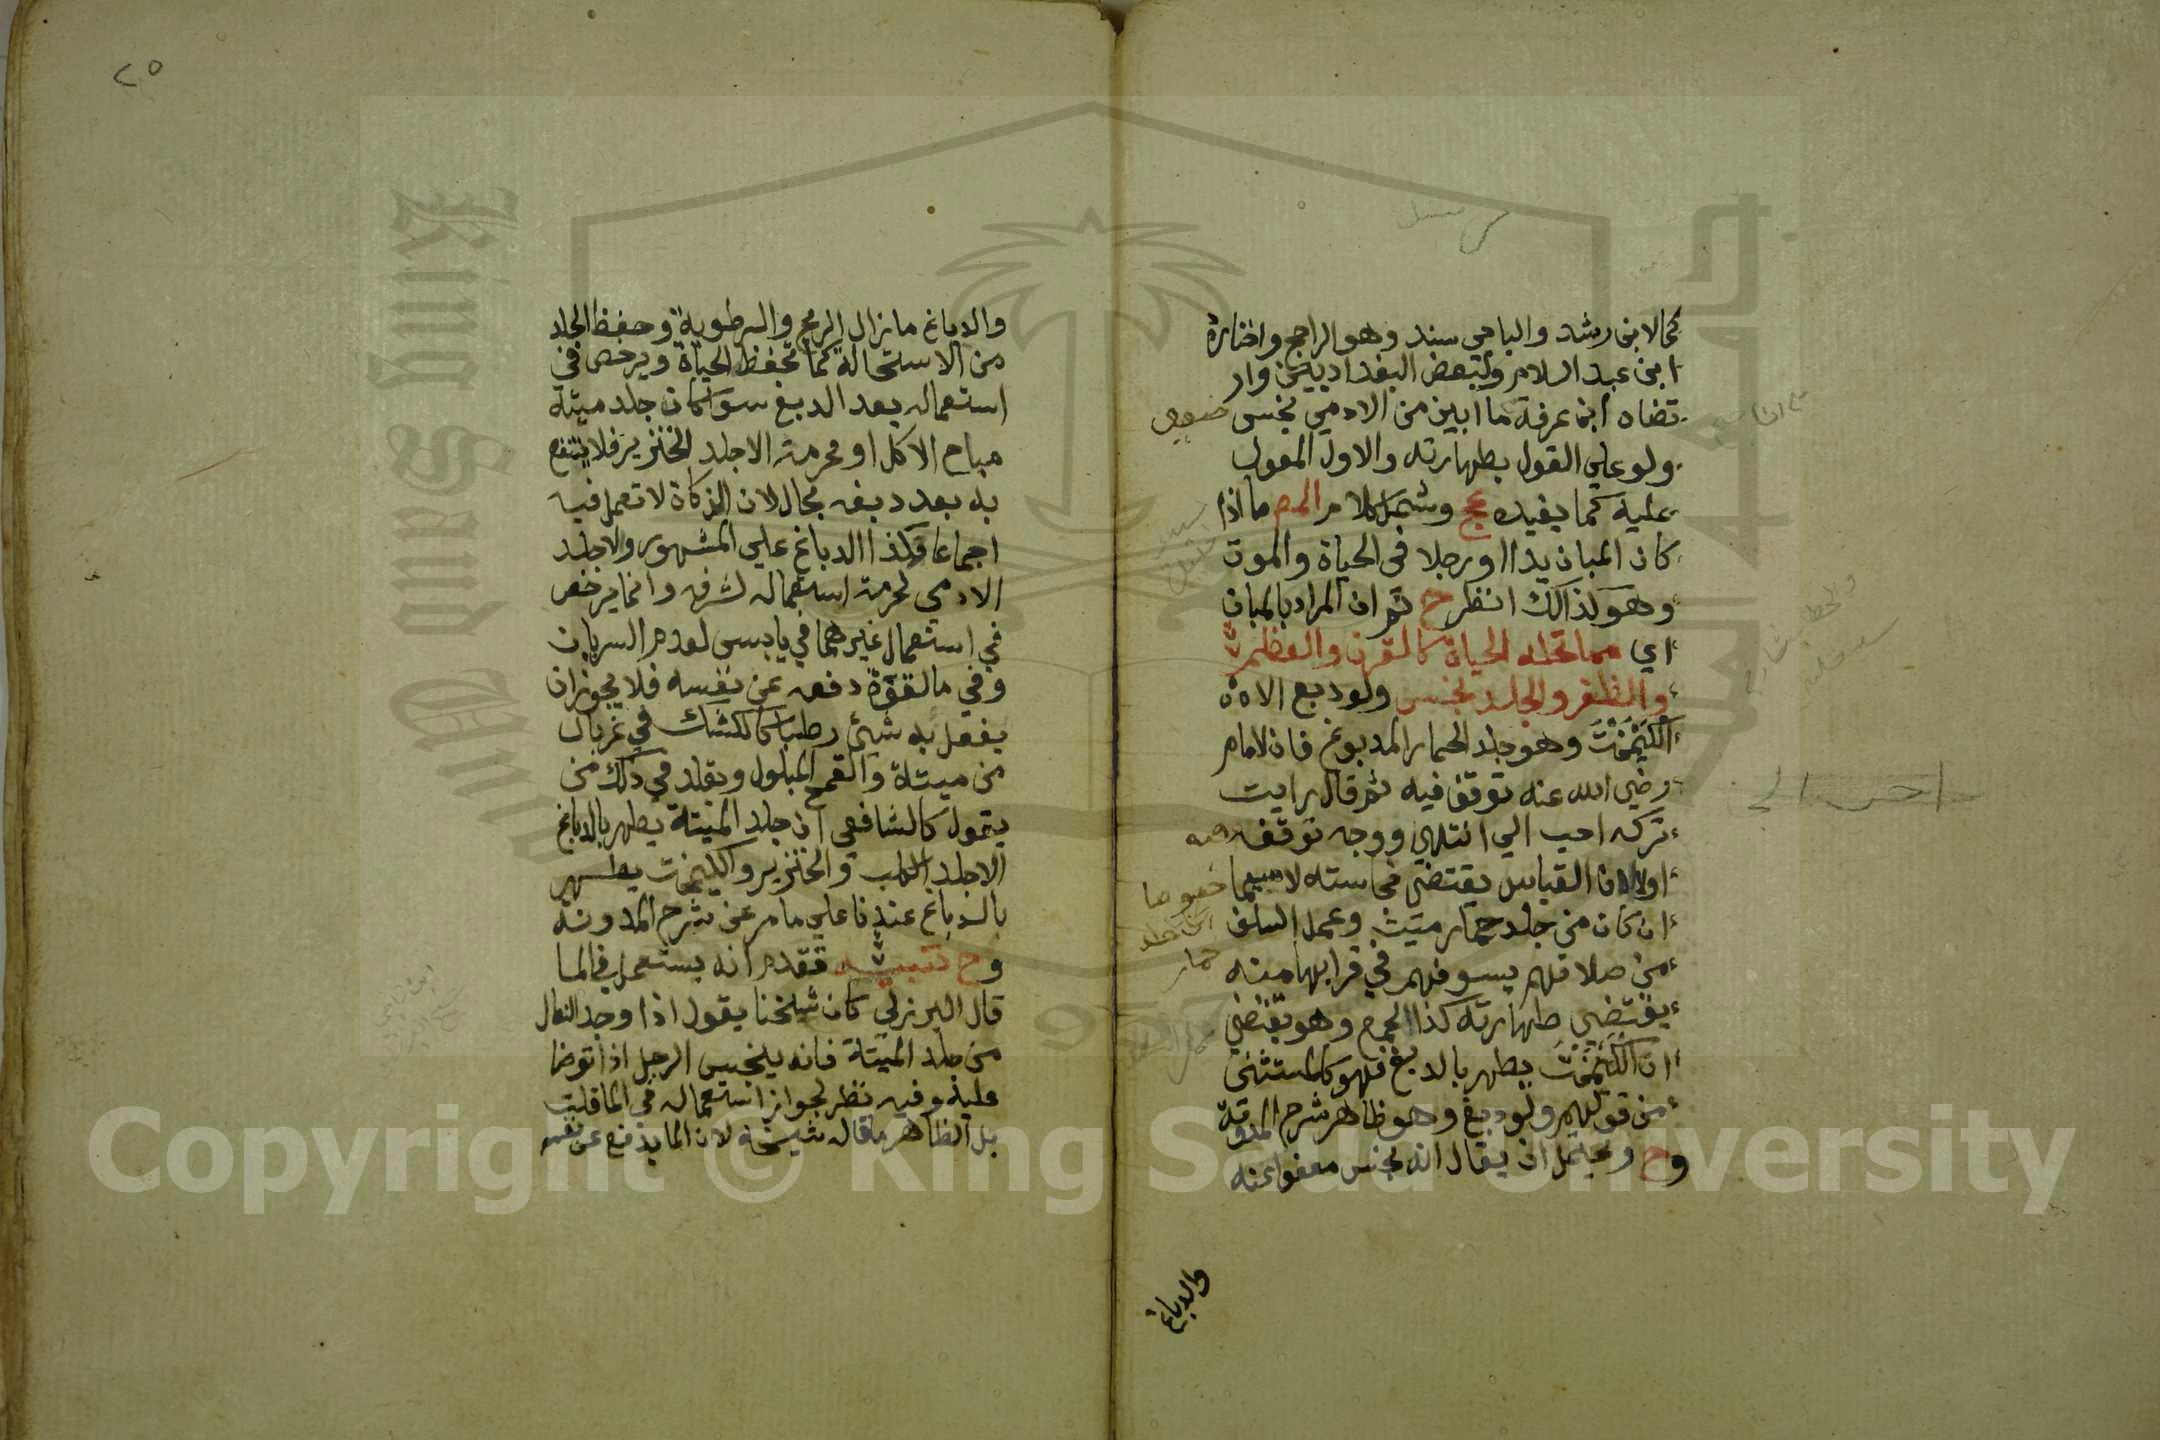 كمالابن رشد والباجي سند وهو الراجح واختاره
ابن عبد السلام ولبعض البغداديين وار
تضاه ابن عرفة ما ابين من الادمي نجس ضعيف
ولو علي القول بطهارته والاول المعول
عليه كما يفيده عج وشمل كلام المص ما اذا
كان المبان يدا او رجلا في الحياة والموت
وهو كذالك انظر ح ثم ان المراد بالمبان
اي مما تحله الحياة كالقرن والعظم
والظفر والجلد نجس ولو دبغ الا
الكَيْمَخْتَ وهو جلد الحمار المدبوغ فان الامام
رضي الله عنه توقف فيه ثم قال رايت
تركه احب الي انتهي ووجه توقفه
اولا ان القياس يقتضي نجاسته لا سيما خصوصا
ان كان من جلد حمار ميت وعمل السلف
من صلاتهم بسيوفهم في قرابها منه
يقتضي طهارته كذا وهو يقتضي
ان الكَيْمَخْتَ يطهر بالدبغ فهو كالمستثنى
من قولهم ولو دبغ وهو ظاهر شرح المدونة
وح ويحتمل ان يقال انه نجس معفوا عنه
والدباغ
احب الي
حمار
٢٥
والدباغ ما زال الريح والرطوبة وحفظ الجلد
من الاستحالة كما تحفظ الحياة ويرخص في
استعماله بعد الدبغ سوا كان جلد ميتة
مباح الاكل او محرمه الا جلد الخنزير فلا ينتفع
به بعد دبغه بحال لان الزكاة لا تعمل فيه
اجماعا فكذا الدباغ علي المشهور والا جلد
الادمي لحرمة استعماله لشرفه وانما يرخص
في استعمال غيرهما في يابس لعدم السريان
وفي ما لقوة دفعه عن نفسه فلا يجوز ان
يفعل به شيئ رطب كالكشك في غربال
من ميتة والقمح المبلول ويقلد في ذلك من
يقول كالشافعي ان جلد الميتة يطهر بالدباغ
الا جلد الكلب والخنزير والكيمخت يطهر
بالدباغ عندنا علي ما مر عن شرح المدونة
وح تنبيه تقدم انه يستعمل في الما
قال البرزلي كان شيخنا يقول اذا وجد النعال
من جلد الميتة فانه ينجس الرجل اذا توضا
عليه وفيه نظر لجواز استعماله في الما قلت
بل الظاهر ما قاله شيخه لان الما يدفع عن نفسه
Copyright © King Saud University
King Saud University